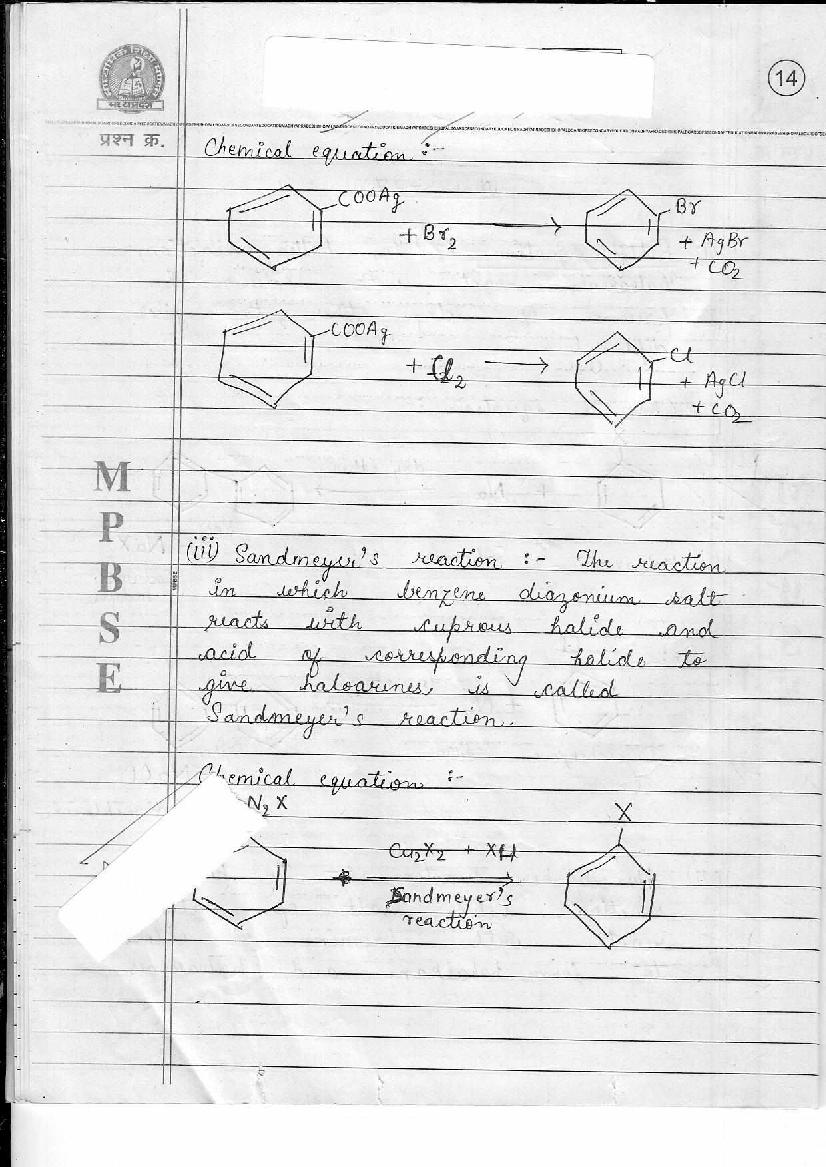 14
मध्यप्रदेश
प्रश्न क्र.
Chemical equation :-
COOAg + Br2 → Br + AgBr + CO2
COOAg + Cl2 → Cl + AgCl + CO2
M
P
B
S
E
(iii) Sandmeyer's reaction :- The reaction
in which benzene diazonium salt
reacts with cuprous halide and
acid of corresponding halide to
give haloarines, is called
Sandmeyer's reaction.
Chemical equation :-
N2X
X
Cu2X2 + XH
Sandmeyer's
reaction